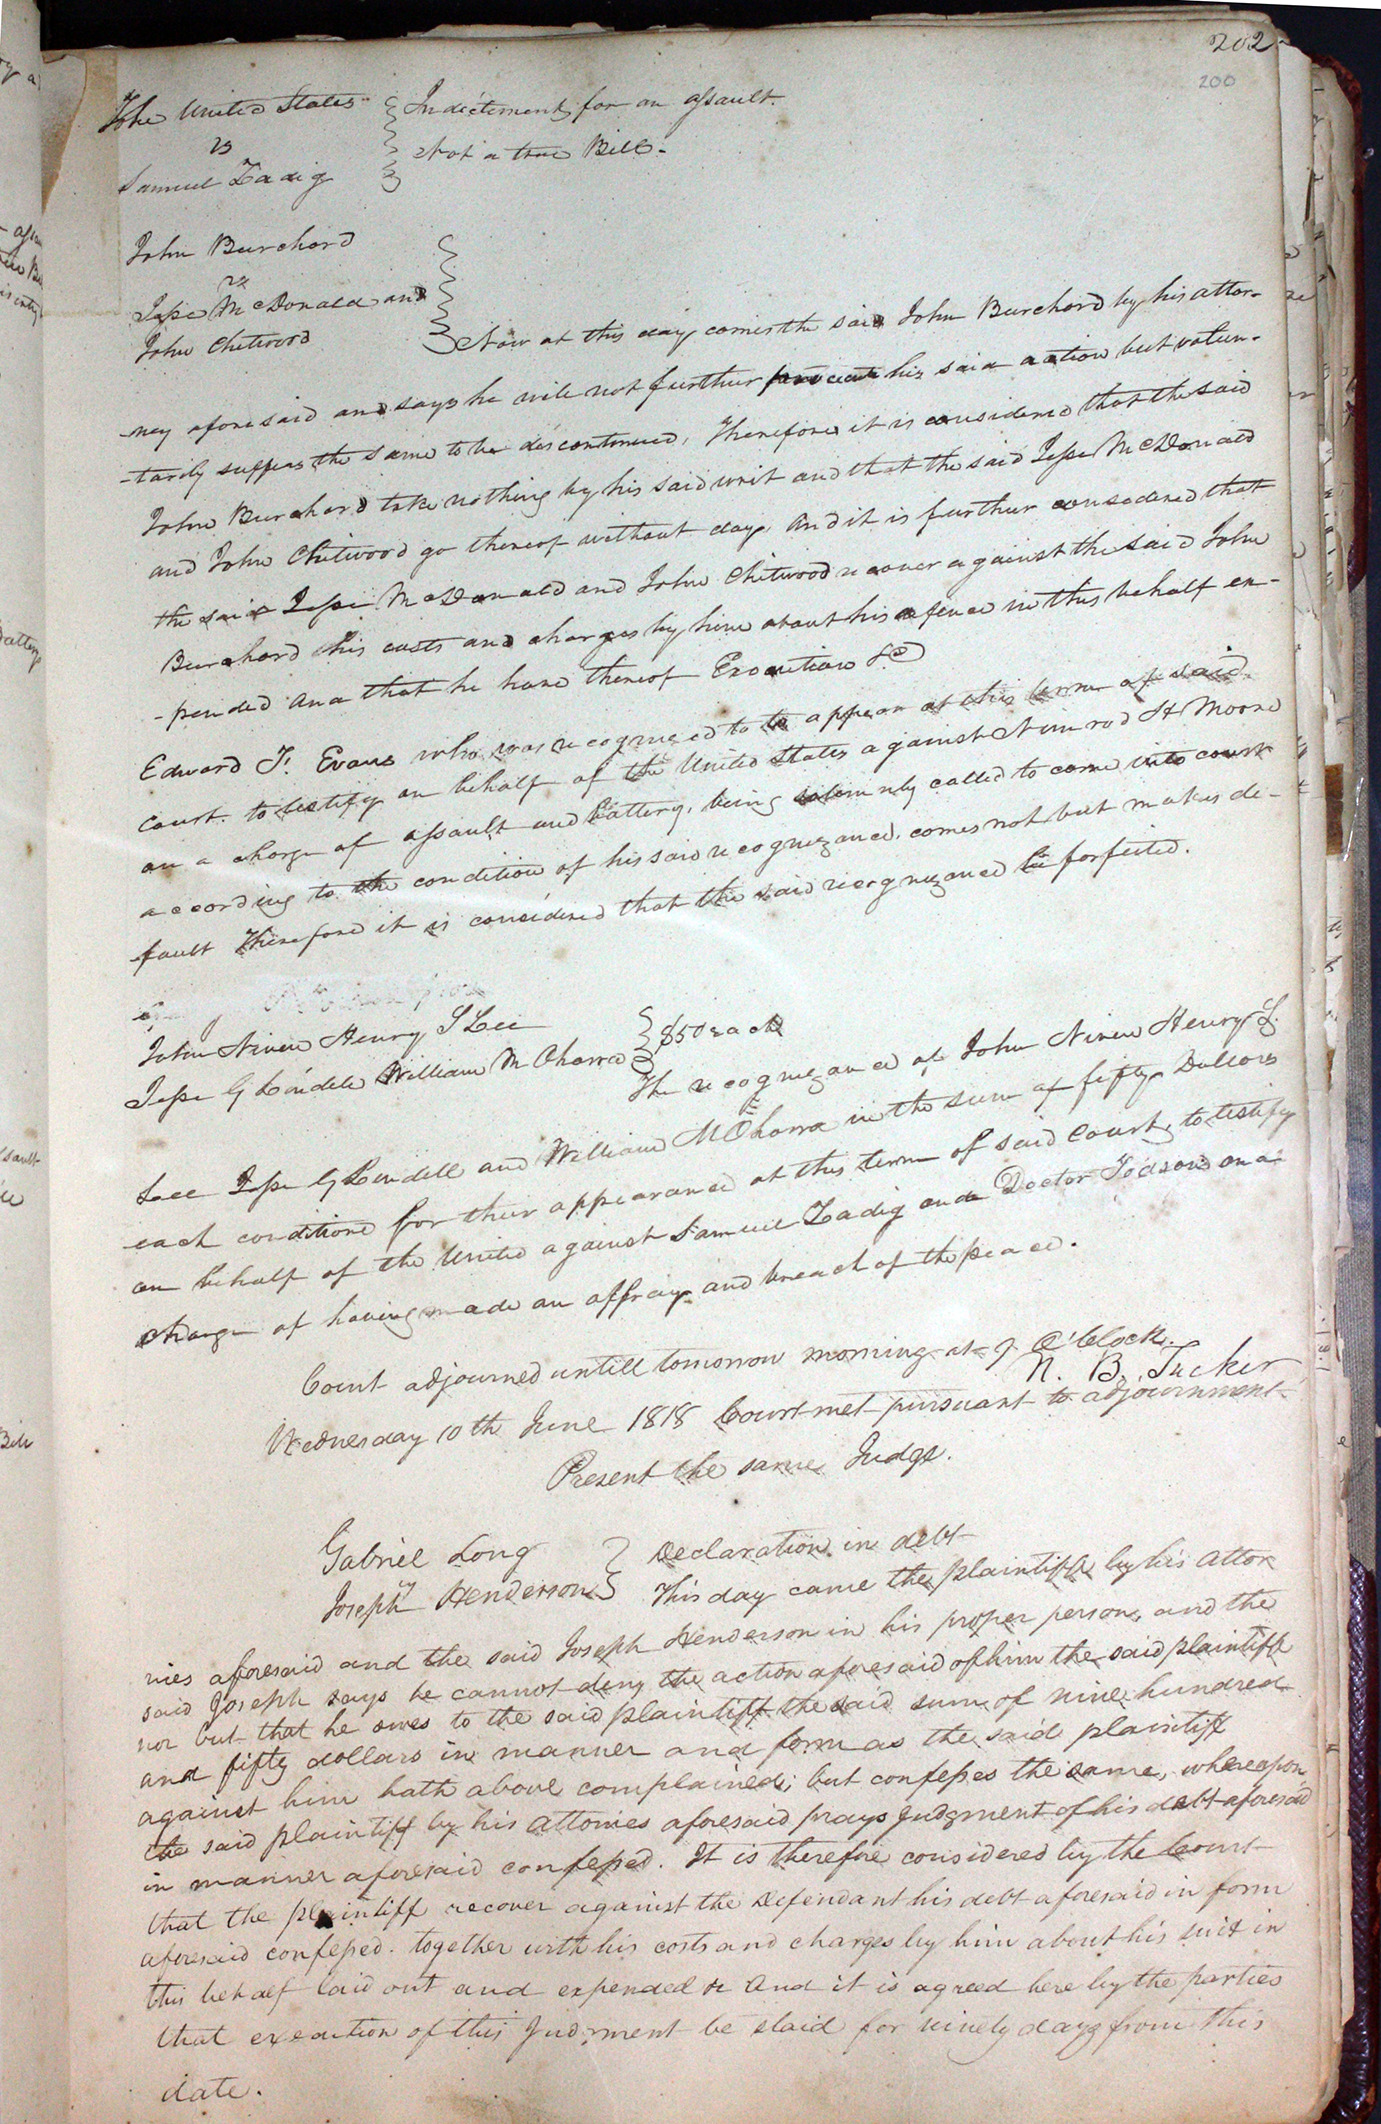 202
200
The United States Indictment for an assault.
vs Not a true Bill.
Samuel Zadig
John Burchard
vs
Jesse McDonald and
John Chitwood
Now at this day comes the said John Burchard by his attor-
-ney aforesaid and says he will not further prosecute his said action but volun-
-tarily suffers the same to be discontinued, Therefore it is considered that the said
John Burchard take nothing by his said writ and that the said Jesse McDonald
and John Chitwood go thereof without day, and it is further considered that
the said Jesse McDonald and John Chitwood recover against the said John
Burchard his costs and charges by him about his defence in this behalf ex-
-pended and that he have thereof Execution &c
Edward F. Evans who was recognized to to appear at this term of said
Court to testify on behalf of the United States against Nimrod H Moore
on a charge of assault and battery, being solemnly called to come into court
according to the condition of his said recognizance, comes not but makes de-
-fault Therefore it is considered that the said recognizance be forfeited.
John Niven Henry S Lee
Jesse G Lindell William M Oharra $50 each
The recognizance of John Niven Henry S.
Lee Jesse G Lindell and William M Oharra in the sum of fifty Dollars
each conditioned for their appearance at this term of said Court, to testify
on behalf of the United against Samuel Zadig and Doctor Todson on a
charge of having made an affray and breach of the peace.
Court adjourned untill tomorrow morning at 9 O'Clock.
N. B. Tucker
Wednesday 10th June 1818 Court met pursuant to adjournment
Present the same Judge.
Gabriel Long Declaration in debt
vs
Joseph Henderson This day came the plaintiff by his attor
nies aforesaid and the said Joseph Henderson in his proper person, and the
said Joseph says he cannot deny the action aforesaid of him the said plaintiff
nor but that he owes to the said plaintiff the said sum of nine hundred
and fifty dollars in manner and form as the said plaintiff
against him hath above complained; but confesses the same, whereupon
the said plaintiff by his attornies aforesaid prays Judgment of his debt aforesaid
in manner aforesaid confessed. It is therefore considered by the Court
that the plaintiff recover against the Defendant his debt aforesaid in form
aforesaid confessed. together with his costs and charges by him about his suit in
this behalf laid out and expended &c And it is agreed here by the parties
that execution of this Judgment be staid for ninety days from this
date.